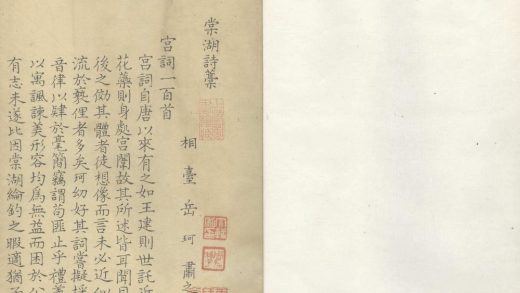 棠湖詩藁
相臺岳珂肅之
宮詞一百首
宮詞自唐以來有之如王建則世託近
花藥則身處宮闈故其所述皆耳聞目
後之傚其體者徒想像而言未必近似
流於褻俚者多矣珂幼好其詞嘗擬
音律以肆於毫簡竊謂苟匪止乎禮義
以寓諷諫美形容均爲無益而困於公
有志未遂比因棠湖綸釣之暇適猶子